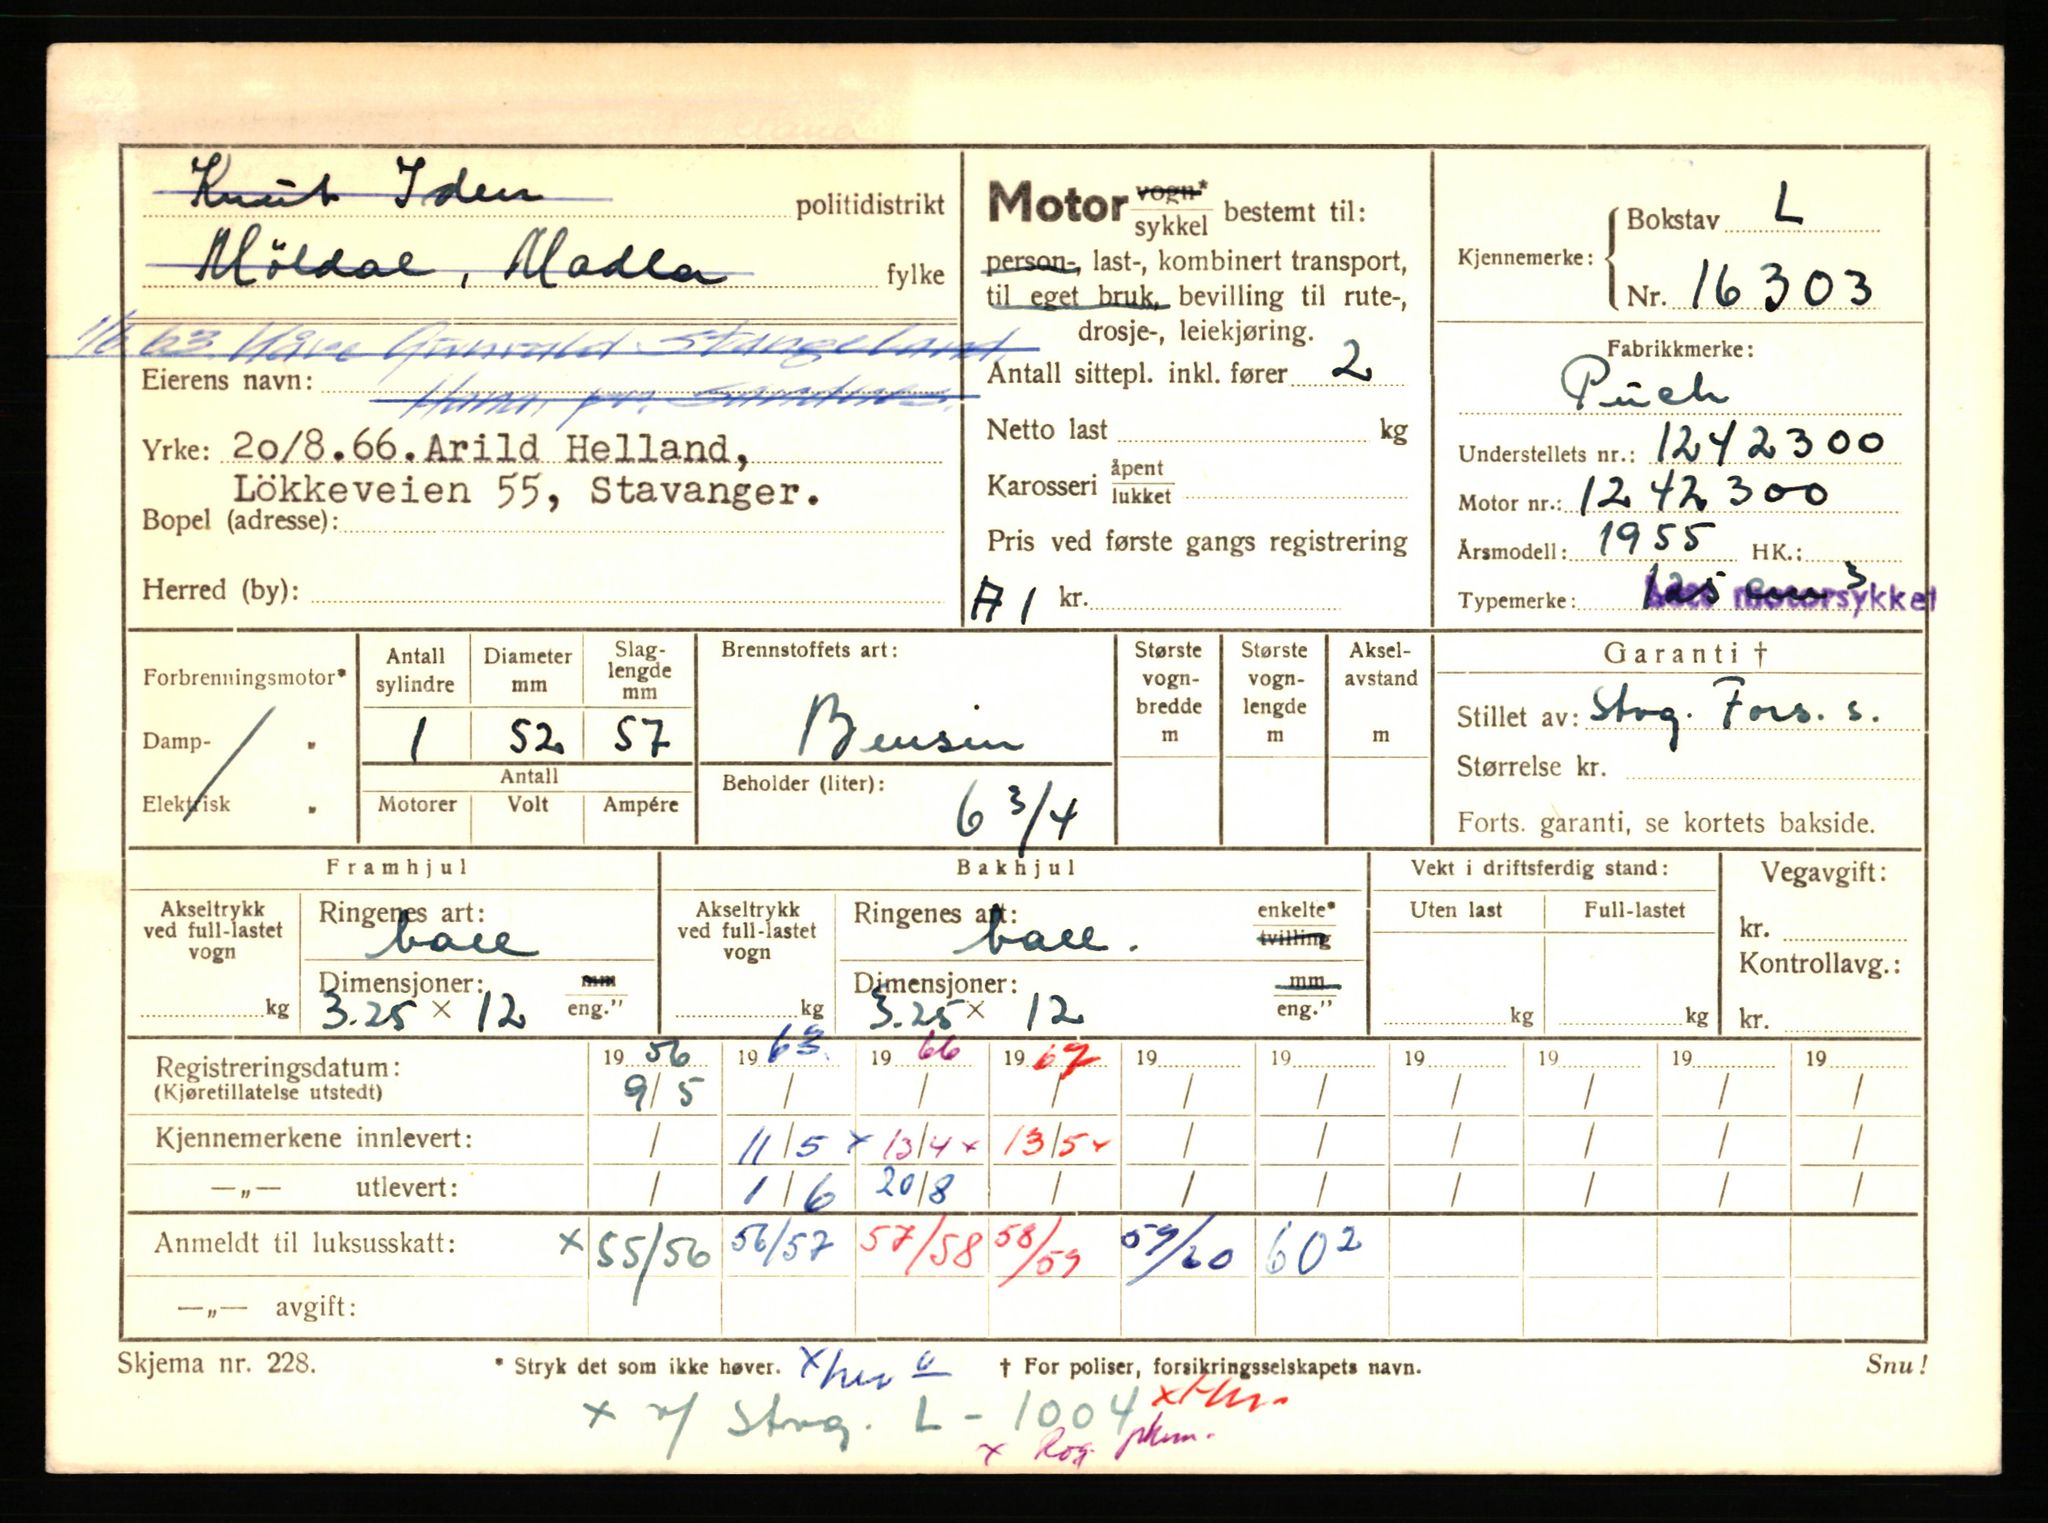 Knut Iden politidistrikt
Möldal, Madla fylke
1/6 63 Kåre Gunvald Stangeland,
Eierens navn:
Hana, pr. Sandnes.
Yrke: 20/8.66.Arild Helland,
Lökkeveien 55, Stavanger.
Bopel (adresse):
Herred (by):
Motor vogn* / sykkel bestemt til:
person-, last-, kombinert transport,
til eget bruk, bevilling til rute-,
drosje-, leiekjøring.
Antall sittepl. inkl. fører 2
Netto last kg
Karosseri åpent / lukket
Pris ved første gangs registrering
A1 kr.
Kjennemerke: Bokstav L
Nr. 16303
Fabrikkmerke:
Puch
Understellets nr.: 1242300
Motor nr.: 1242300
Årsmodell: 1955 HK.:
Typemerke: 125 cm3 motorsykkel
Forbrenningsmotor*
Damp- „
Elektrisk „
Antall sylindre Diameter mm Slaglengde mm
1 52 57
Antall
Motorer Volt Ampére
Brennstoffets art:
Bensin
Beholder (liter):
6 3/4
Største vognbredde m
Største vognlengde m
Akselavstand m
Garanti †
Stillet av: Stvg. Fors. s.
Størrelse kr.
Forts. garanti, se kortets bakside.
Framhjul
Akseltrykk ved full-lastet vogn kg
Ringenes art: ball
Dimensjoner: mm / eng.”
3.25 × 12
Bakhjul
Akseltrykk ved full-lastet vogn kg
Ringenes art: enkelte* / tvilling
ball.
Dimensjoner: mm / eng.”
3.25 × 12
Vekt i driftsferdig stand:
Uten last Full-lastet
kg kg
Vegavgift:
kr.
Kontrollavg.:
kr.
Registreringsdatum: 19 56 19 63. 19 66 19 67 19 19 19 19 19 19
(Kjøretillatelse utstedt) 9/5 / / / / / / / / /
Kjennemerkene innlevert: / 11/5 x 13/4 x 13/5 x / / / / / /
—„— utlevert: / 1/6 20/8 / / / / / / /
Anmeldt til luksusskatt: x 55/56 56/57 57/58 58/59 59/60 602
—„— avgift:
Skjema nr. 228. * Stryk det som ikke høver. † For poliser, forsikringsselskapets navn. Snu!
x v/ Stvg. L - 1004
x Rog.